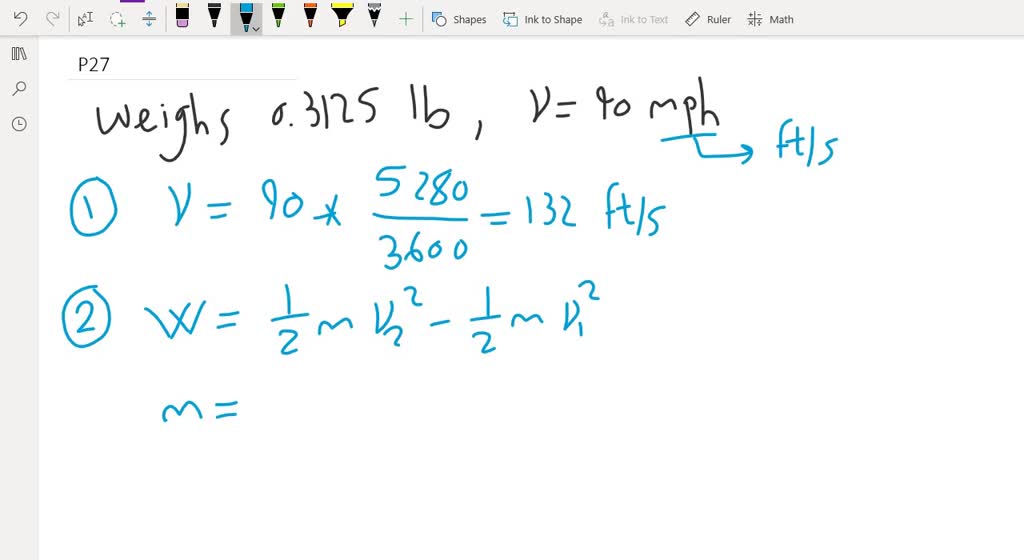 Shapes Ink to Shape Ink to Text Ruler Math
P27
weighs 0.3125 lb, V = 90 mph
→ ft/s
① V = 90 * 5280/3600 = 132 ft/s
② W = 1/2 m V₂² - 1/2 m V₁²
m =